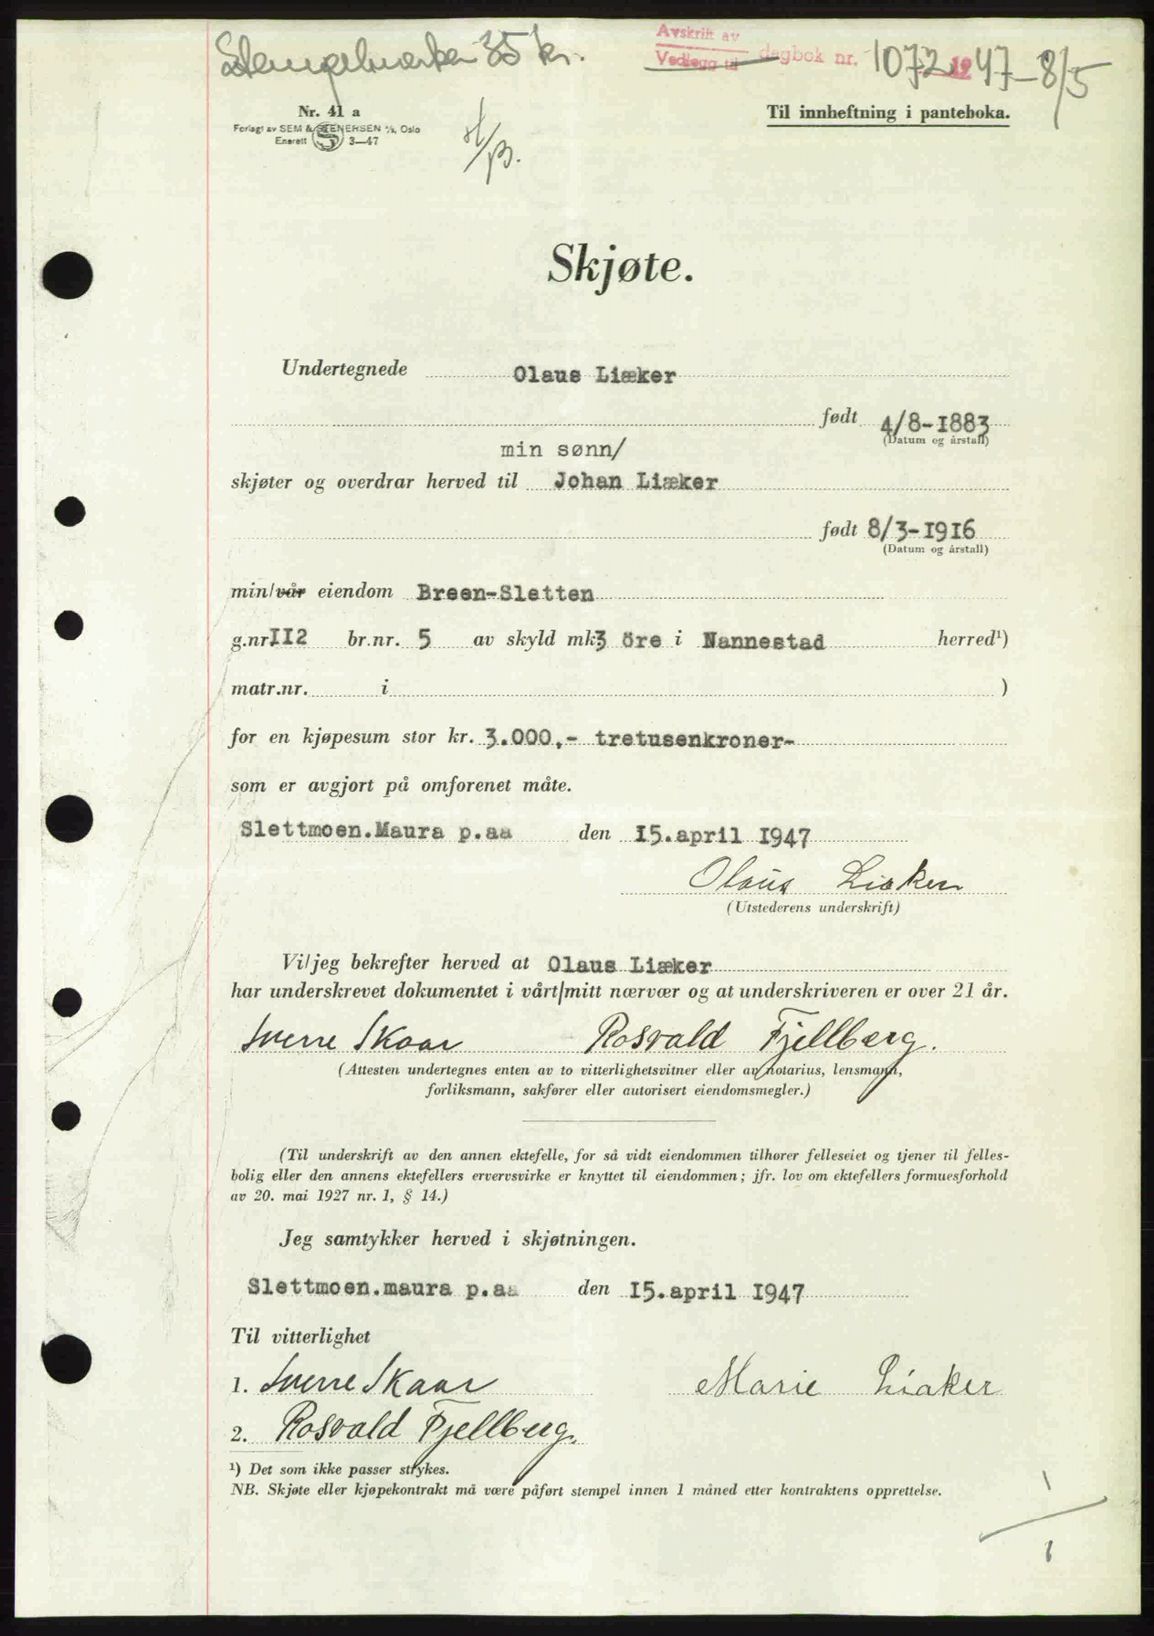 Stempelmerker 35 kr.
Avskrift av
Vedlegg til dagbok nr. 1072 1947-8/5
Nr. 41 a
Til innheftning i panteboka.
Forlagt av SEM & STENERSEN A/S, Oslo
Enerett S 3—47
Skjøte.
Undertegnede Olaus Liæker
født 4/8-1883
(Datum og årstall)
min sønn/
skjøter og overdrar herved til Johan Liæker
født 8/3-1916
(Datum og årstall)
min/vår eiendom Breen-Sletten
g.nr. II2 br.nr. 5 av skyld mk 3 öre i Nannestad herred¹)
matr.nr. i )
for en kjøpesum stor kr. 3.000,- tretusenkroner-
som er avgjort på omforenet måte.
Slettmoen.Maura p.aa den I5.april I947
Olaus Liaker
(Utstederens underskrift)
Vi/jeg bekrefter herved at Olaus Liæker
har underskrevet dokumentet i vårt/mitt nærvær og at underskriveren er over 21 år.
Sverre Skaar Rosvald Fjellberg.
(Attesten undertegnes enten av to vitterlighetsvitner eller av notarius, lensmann,
forliksmann, sakfører eller autorisert eiendomsmegler.)
(Til underskrift av den annen ektefelle, for så vidt eiendommen tilhører felleseiet og tjener til felles-
bolig eller den annens ektefellers ervervsvirke er knyttet til eiendommen; jfr. lov om ektefellers formuesforhold
av 20. mai 1927 nr. 1, § 14.)
Jeg samtykker herved i skjøtningen.
Slettmoen.maura p.aa den I5.april I947
Til vitterlighet
1. Sverre Skaar Marie Liaker
2. Rosvald Fjellberg.
¹) Det som ikke passer strykes.
NB. Skjøte eller kjøpekontrakt må være påført stempel innen 1 måned etter kontraktens opprettelse.
1
1